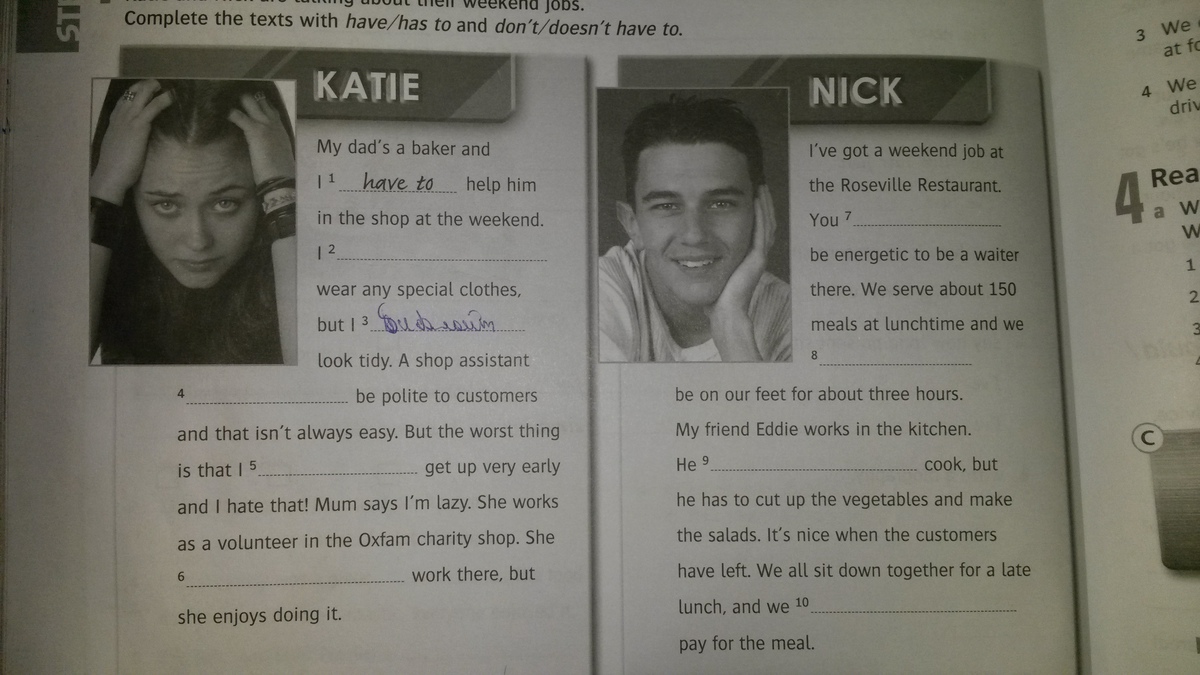 STE
Katie and Nick are talking about their weekend jobs.
Complete the texts with have/has to and don't/doesn't have to.
KATIE
My dad's a baker and
I 1 have to help him
in the shop at the weekend.
I 2
wear any special clothes,
but I 3
look tidy. A shop assistant
4 be polite to customers
and that isn't always easy. But the worst thing
is that I 5 get up very early
and I hate that! Mum says I'm lazy. She works
as a volunteer in the Oxfam charity shop. She
6 work there, but
she enjoys doing it.
NICK
I've got a weekend job at
the Roseville Restaurant.
You 7
be energetic to be a waiter
there. We serve about 150
meals at lunchtime and we
8
be on our feet for about three hours.
My friend Eddie works in the kitchen.
He 9 cook, but
he has to cut up the vegetables and make
the salads. It's nice when the customers
have left. We all sit down together for a late
lunch, and we 10
pay for the meal.
3 We
at fo
4 We
driv
4 Rea
a W
W
1
2
3
C